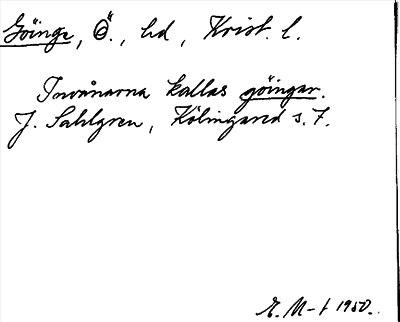 Göinge, Ö., hd, Krist. l.
Invånarna kallas göingar.
J. Sahlgren, Kölingared s. 7.
E. M-t 1950.